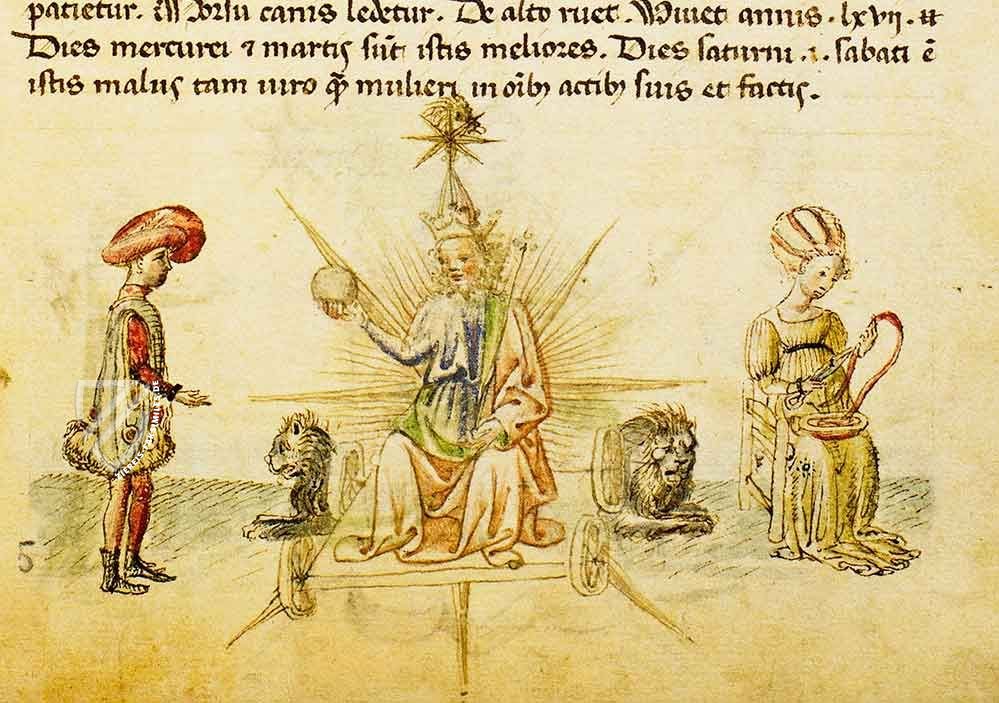 patietur. Morsu canis ledetur. De alto ruet. Viuet annis. lxvij.
Dies mercurei ⁊ martis sūt istis meliores. Dies saturni .i. sabati ē
istis malus tam uiro q̄ mulieri in oībꝫ actibꝫ suis et factis.
5